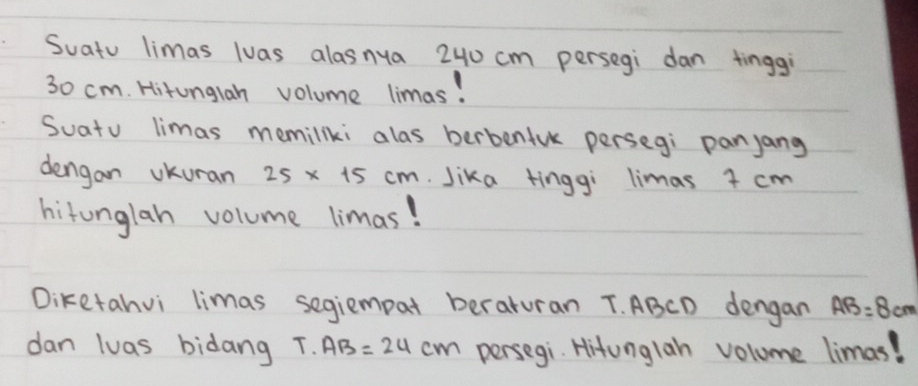 Suatu limas luas alasnya 240 cm persegi dan tinggi
30 cm. Hitunglah volume limas!
Suatu limas memiliki alas berbentuk persegi panjang
dengan ukuran 25 x 15 cm. Jika tinggi limas 7 cm
hitunglah volume limas!
Diketahui limas segiempat beraturan T.ABCD dengan AB=8cm
dan luas bidang T.AB=24 cm persegi. Hitunglah volume limas!